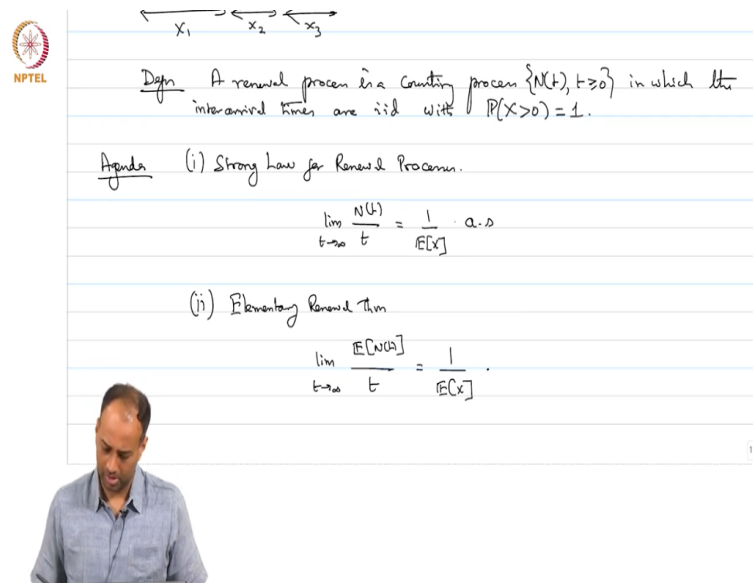 X₁ X₂ X₃
NPTEL
Defn A renewal process is a counting process {N(t), t≥0} in which the
interarrival times are iid with P(X>0)=1.
Agenda (i) Strong Law for Renewal Processes.
lim t→∞ N(t)/t = 1/E[X] a.s
(ii) Elementary Renewal Thm
lim t→∞ E[N(t)]/t = 1/E[X].
1